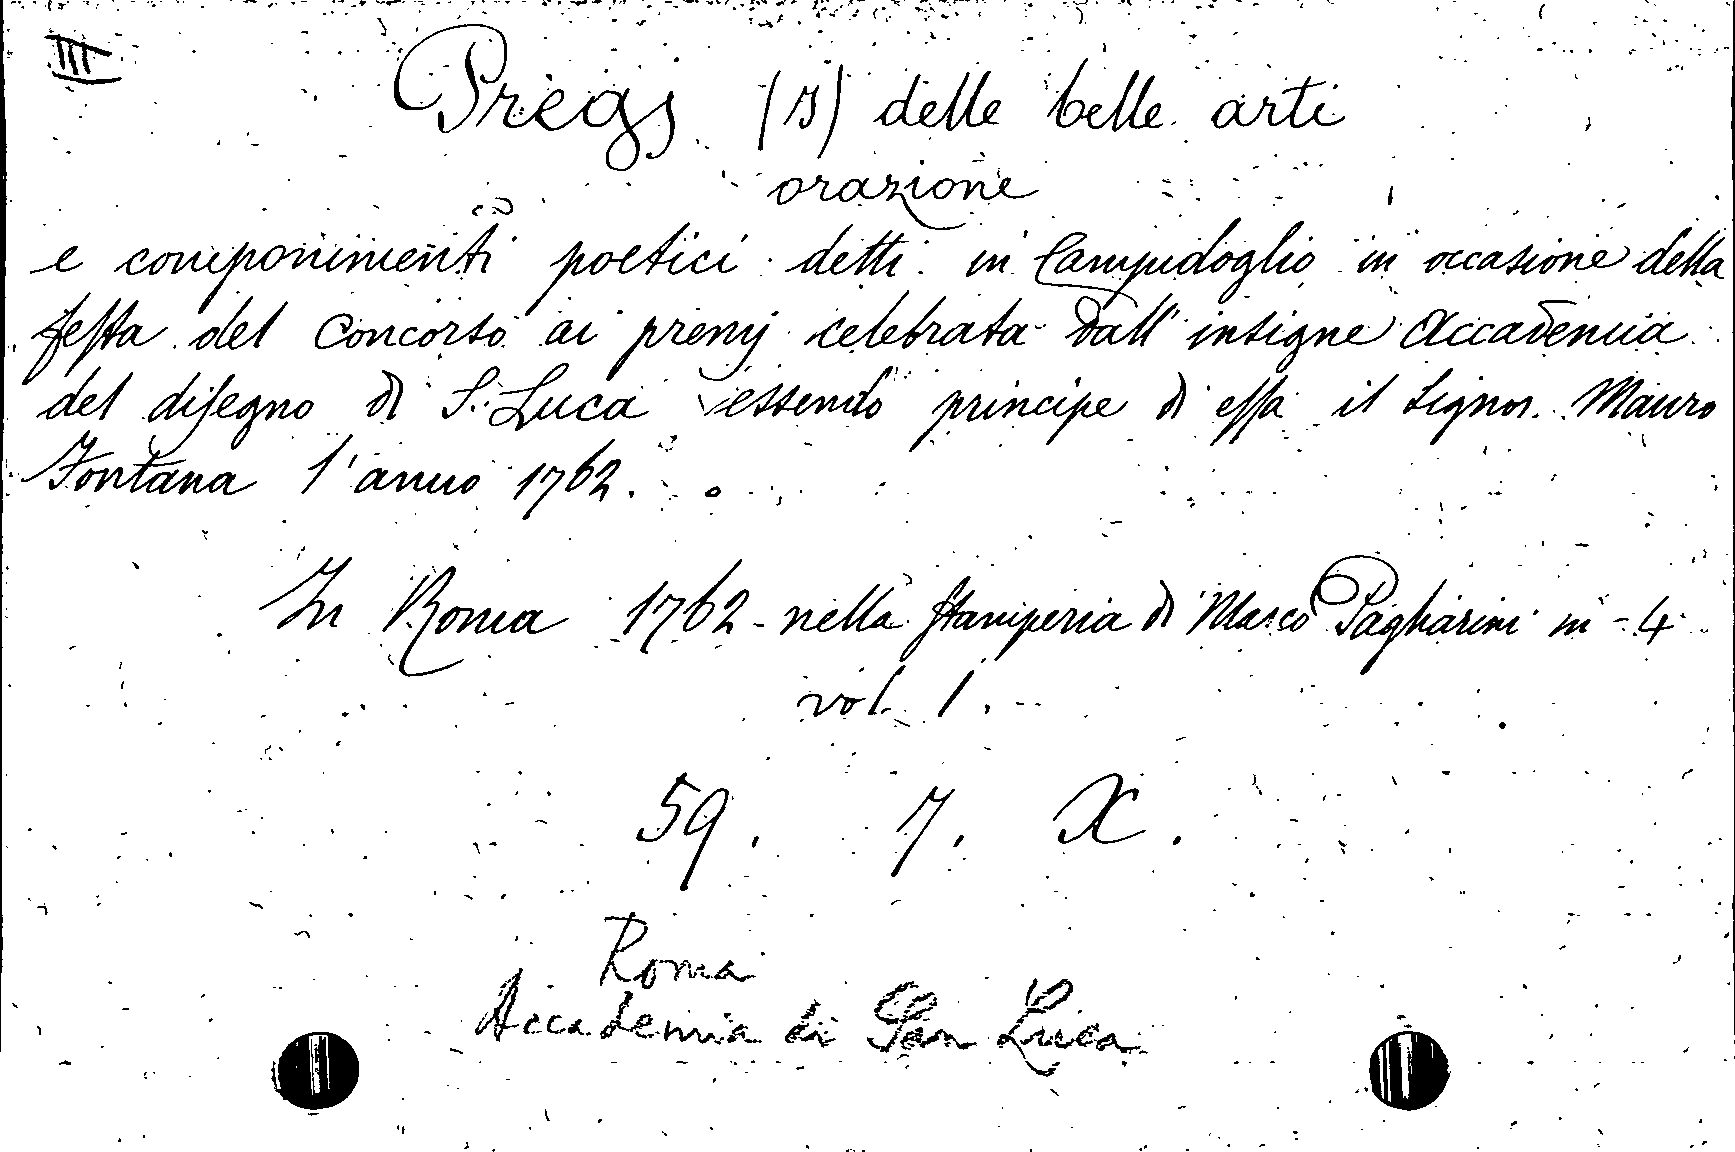 III
Pregj (I) delle belle arti
orazione
e componimenti poetici detti in Campidoglio in occasione della
festa del Concorso ai premj celebrata dall' insigne Accademia
del disegno di S. Luca essendo principe di essa il Signor. Mauro
Fontana l'anno 1762.
In Roma 1762 - nella stamperia di Marco Pagliarini in - 4
vol. 1.
59. 7. X.
Roma
Accademia di San Luca